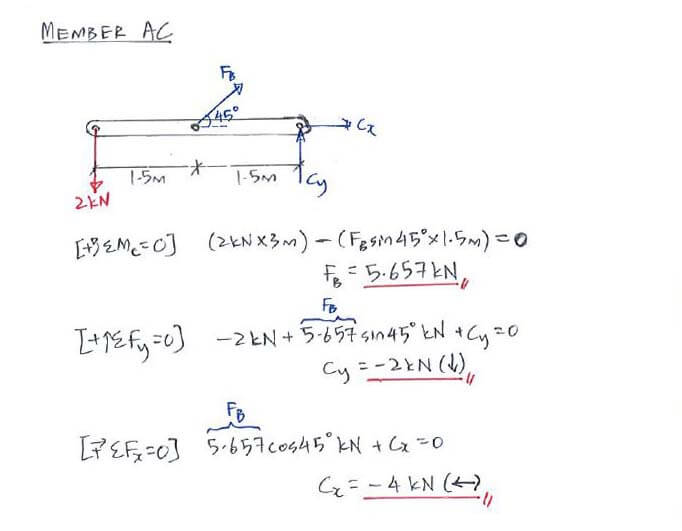 MEMBER AC
F_B
45°
C_x
1.5M 1.5M
C_y
2kN
[+↺ ΣM_c=0] (2kN×3m) − (F_B sin45°×1.5m) = 0
F_B = 5.657kN //
F_B
[+↑ΣF_y=0] −2kN + 5.657sin45°kN + C_y = 0
C_y = −2kN (↓) //
F_B
[→+ ΣF_x=0] 5.657cos45°kN + C_x = 0
C_x = −4kN (←) //